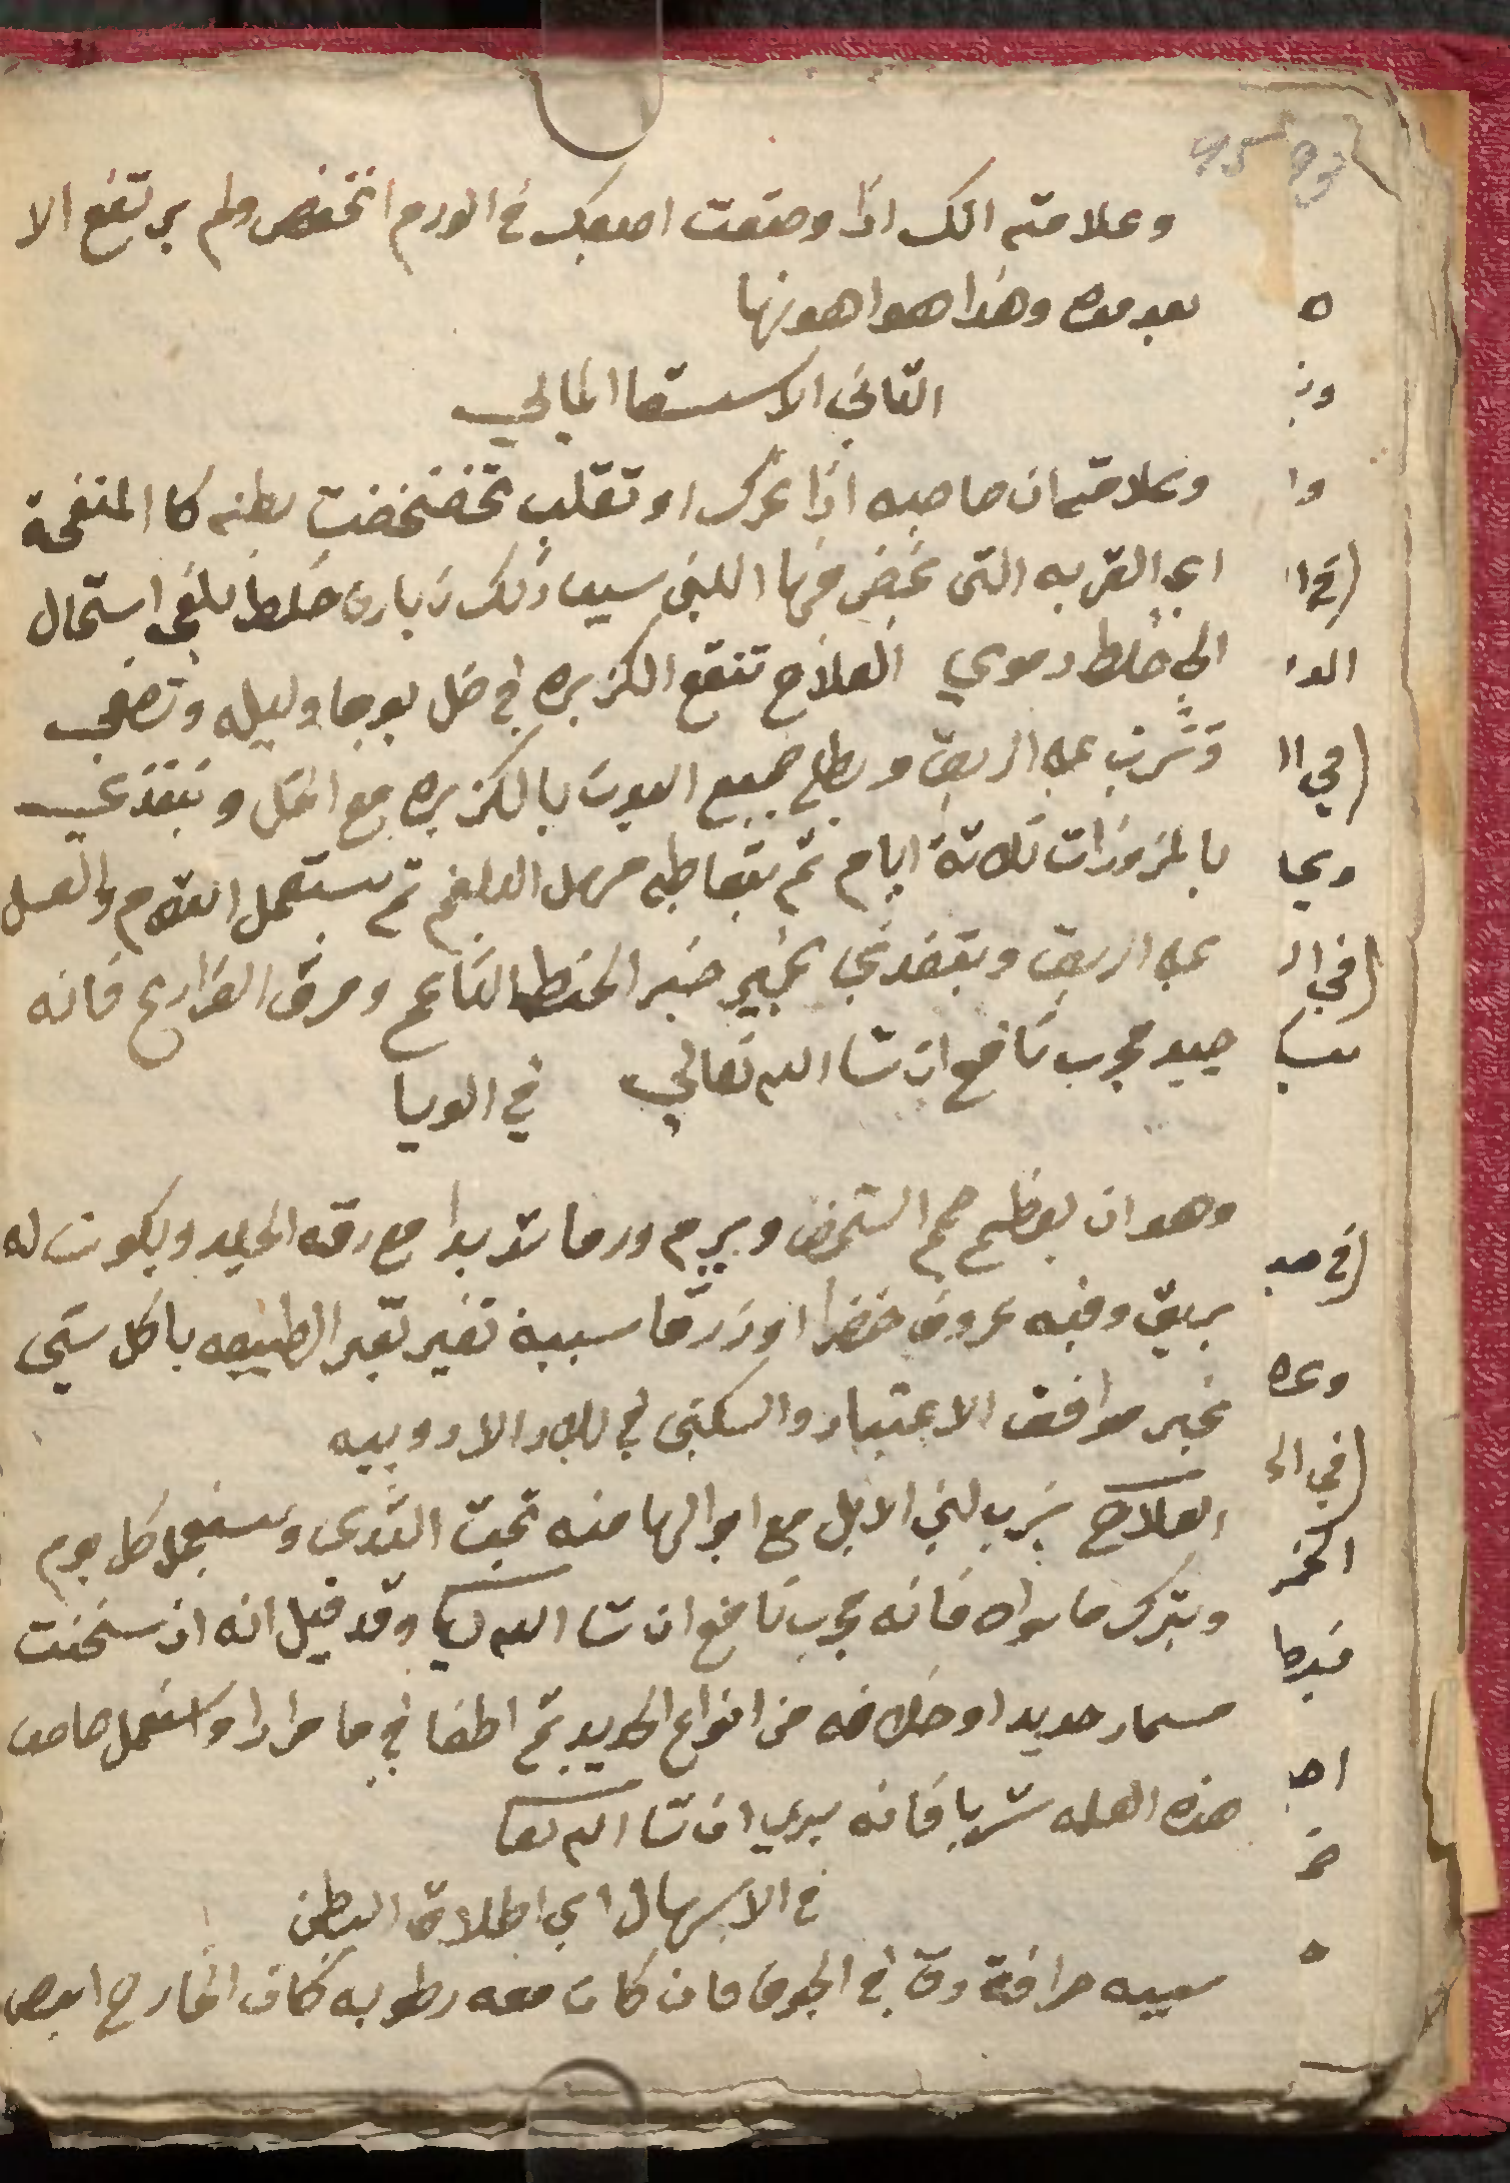 وعلامته انك اذا وضعت اصبعك في الورم انخفض ولم يرتفع الا
بعد مده وهذا هو اهونها
الثاني الاستسقا المايي
وعلامته ان صاحبه اذا تحرك او تقلب تخضخضت بطنه كا المنفخة
اي القربه التي يخض فيها اللبن سببه ذلك زيادة خلط بلغمي استحال
الي خلط دموي العلاج تنقع الكزبره في خل يوما وليله وتصفي
وتشرب علي الريق ويطلي جميع البدن بالكزبره مع الخل ويتغذي
بالمزورات ثلاثة ايام ثم يتعاطي مسهل البلغم ثم يستعمل والعسل
علي الريق ويتغذي بخبز الحنطه الناعم ومرق الفراريج فانه
جيد مجرب نافع ان شا الله تعالي في
وهو ان يعظم جسم الشخص ويرم ورما شديدا مع رقه الجلد ويكون له
بريق وفيه عروق خضرا او زرقا سببه تغير الطبيعه باكل شي
غير موافق الاعتياد والسكني في بلاد
العلاج شرب لبن الابل مع ابوالها منه تحت الثدي ويستعمل كل يوم
ويترك ما سواه فانه مجرب نافع ان شا الله تعا وقد قيل انه ان سخنت
مسمار حديد او خلافه من انواع الحديد ثم اطفا في ما مرارا واستعمل صاحب
هذه العله شربا فانه يبري ان شا الله تعا
في الاسهال اي اطلاق البطن
سببه حرافة في الجوف فان كان معه رطوبه كان الخارج ابيض